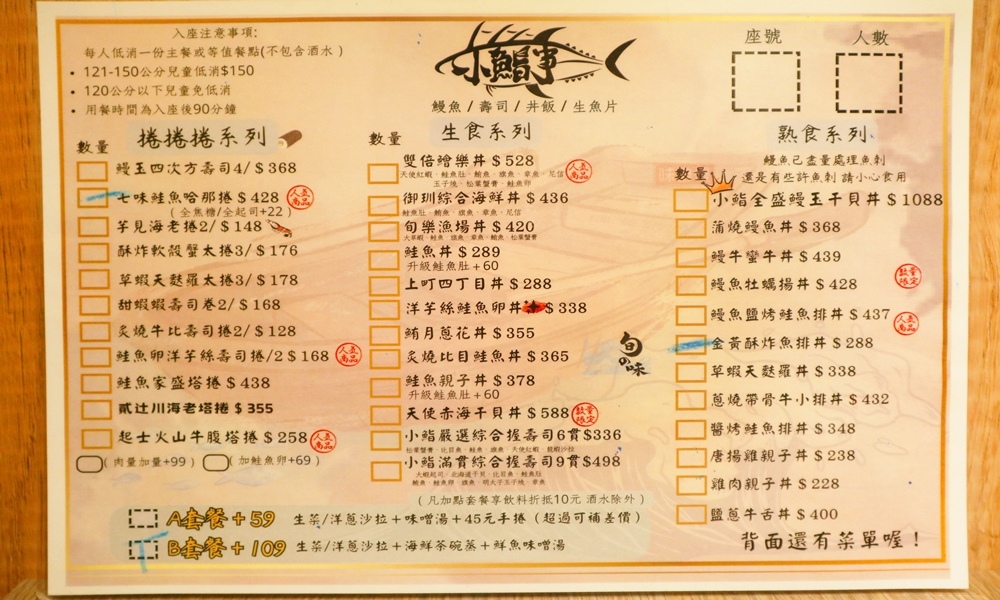 入座注意事項:
每人低消一份主餐或等值餐點(不包含酒水)
• 121-150公分兒童低消$150
• 120公分以下兒童免低消
• 用餐時間為入座後90分鐘
鰻魚/壽司/丼飯/生魚片
座號
人數
數量
捲捲捲系列
鰻玉四次方壽司4/$368
七味鮭魚哈那捲$428
人氣商品
(全焦糖/全起司+22)
芋見海老捲2/$148
酥炸軟殼蟹太捲3/$176
草蝦天麩羅太捲3/$178
甜蝦蝦壽司卷2/$168
炙燒牛比壽司捲2/$128
鮭魚卵洋芋絲壽司捲/2$168
人氣商品
鮭魚家盛塔捲$438
貳辻川海老塔捲$355
起士火山牛腹塔捲$258
人氣商品
(肉量加量+99)
(加鮭魚卵+69)
數量
生食系列
雙倍繪樂丼$528
人氣商品
天使紅蝦．鮭魚肚．鮪魚．旗魚．章魚．尼信
玉子燒．松葉蟹膏．鮭魚卵
御玥綜合海鮮丼$436
鮭魚肚．鮪魚．旗魚．章魚．尼信
旬樂漁場丼$420
鮭魚丼$289
升級鮭魚肚+60
上町四丁目丼$288
洋芋絲鮭魚卵丼$338
鮪月蔥花丼$355
炙燒比目鮭魚丼$365
鮭魚親子丼$378
升級鮭魚肚+60
天使赤海干貝丼$588
數量限定
小鮨嚴選綜合握壽司6貫$336
小鮨滿貫綜合握壽司9貫$498
旬の味
熟食系列
鰻魚已盡量處理魚刺
還是有些許魚刺 請小心食用
數量
小鮨全盛鰻玉干貝丼$1088
蒲燒鰻魚丼$368
鰻牛蠻牛丼$439
鰻魚牡蠣揚丼$428
數量限定
鰻魚鹽烤鮭魚排丼$437
人氣商品
金黃酥炸魚排丼$288
草蝦天麩羅丼$338
蔥燒帶骨牛小排丼$432
醬烤鮭魚排丼$348
唐揚雞親子丼$238
雞肉親子丼$228
鹽蔥牛舌丼$400
(凡加點套餐享飲料折抵10元 酒水除外)
A套餐+59 生菜/洋蔥沙拉+味噌湯+45元手捲(超過可補差價)
B套餐+109 生菜/洋蔥沙拉+海鮮茶碗蒸+鮮魚味噌湯
背面還有菜單喔!